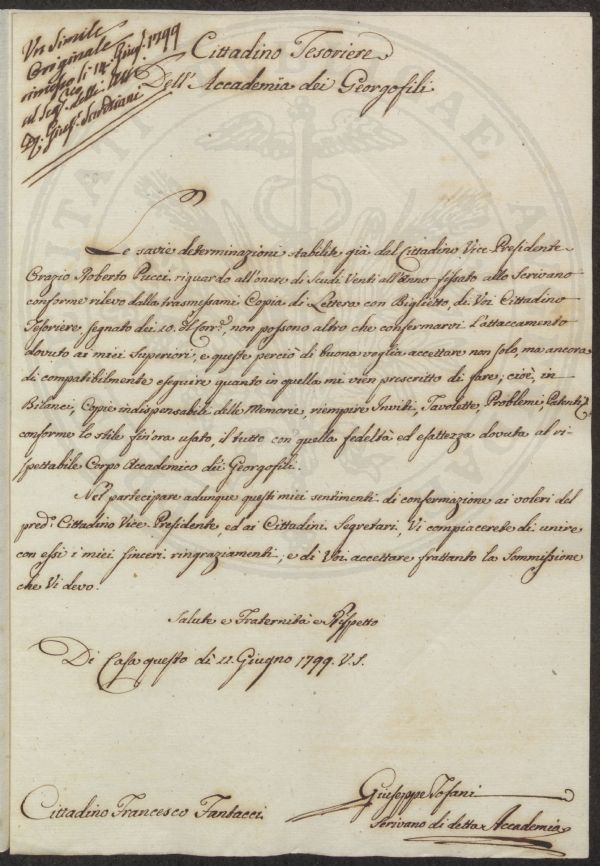 Un Simile
Originale
rimesso li 14. Giug.º 1799
al Seg.rio delli Atti
D.r Giu.e Sarchiani
Cittadino Tesoriere
Dell'Accademia dei Georgofili.
Le savie determinazioni stabilite già dal Cittadino Vice Presidente
Orazio Roberto Pucci, riguardo all'onere di Scudi Venti all'Anno fissato allo Scrivano
conforme rilevo dalla trasmessami Copia di Lettera con Biglietto, di Voi Cittadino
Tesoriere, segnato dei 10. del corr.e, non possono altro che confermarvi l'attaccamento
dovuto ai miei Superiori, e queste perciò di buona voglia accettare non solo, ma ancora
di compatibilmente eseguire quanto in quella mi vien prescritto di fare; cioè, in
Bilanci, Copie indispensabili delle Memorie, riempire Inviti, Tavolette, Problemi, Patenti &
conforme lo stile fin'ora usato, il tutto con quella fedeltà ed esattezza dovuta al ri-
spettabile Corpo Accademico dei Georgofili.
Nel partecipare adunque questi miei sentimenti di confermazione ai voleri del
pred.º Cittadino Vice Presidente, ed ai Cittadini Segretari, Vi compiacerete di unire
con essi i miei sinceri ringraziamenti, e di Voi accettare frattanto la Sommissione
che Vi devo.
Salute e Fraternità e Rispetto
Di Casa questo dì 11. Giugno 1799. V.S.
Giuseppe Tofani
Cittadino Francesco Fantacci.
Scrivano di detta Accademia